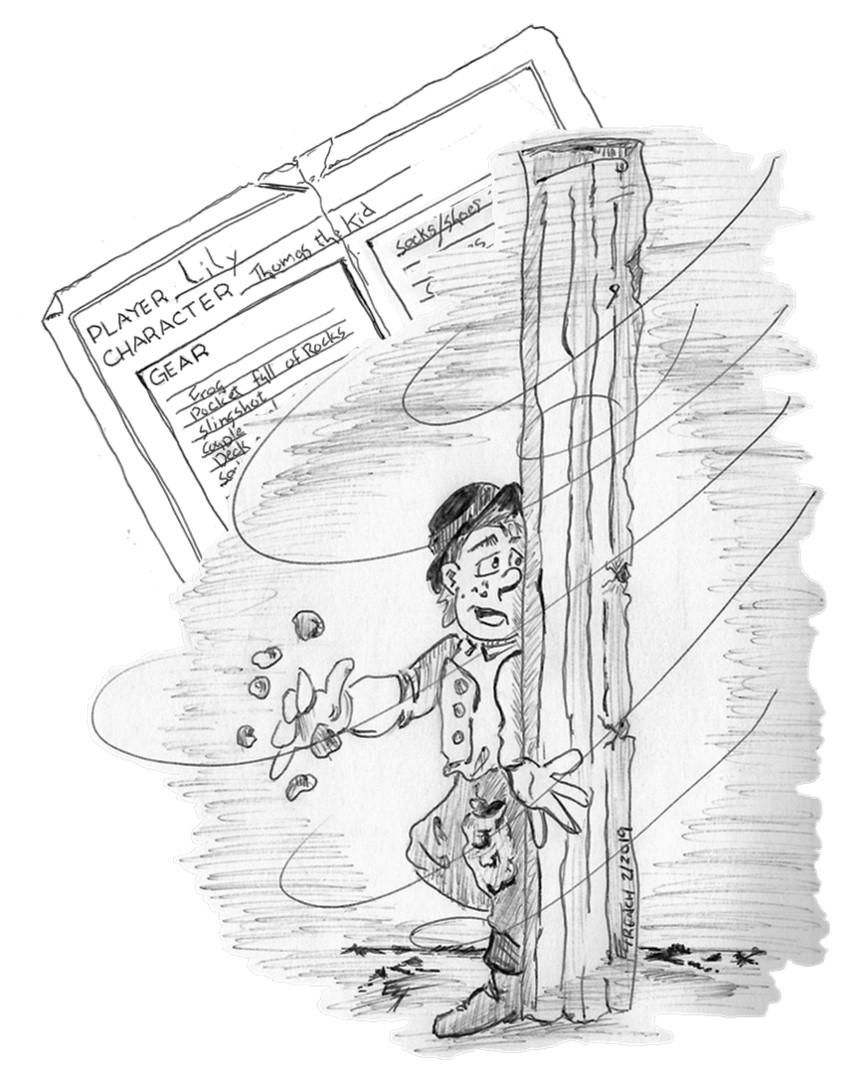 PLAYER Lily
CHARACTER Thomas the Kid
GEAR
Frog
Pocket full of Rocks
Slingshot
Couple
Deck
Socks/Shoes
FRENCH 2/2019